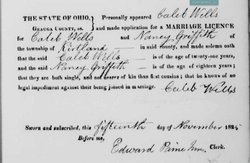 THE STATE OF OHIO, Personally appeared Caleb Wells
GEAUGA COUNTY, ss. and made application for a MARRIAGE LICENCE
for Caleb Wells and Nancy Griffith of
the township of Kirtland in said county, and made solemn oath
that the said Caleb Wells is of the age of twenty-one years,
and the said Nancy Griffith is of the age of eighteen years;
that they are both single, and not nearer of kin than first cousins; that he knows of no
legal impediment against their being joined in marriage.
Caleb Wells
Sworn and subscribed, this fifteenth day of November 182
Edward Paine Jun. Clerk.